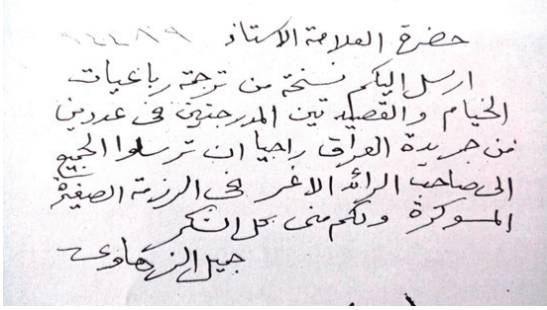 حضرة العلامة الاستاذ
ارسل إليكم نسخة من ترجمة رباعيات
الخيام والقصيدتين المدرجتين في عددين
من جريدة العراق راجيا ان ترسلوا الجميع
الى صاحب الرائد الاغر في الرزمة الصغيرة
المسوكرة ولكم مني كل الشكر
جميل الزهاوي